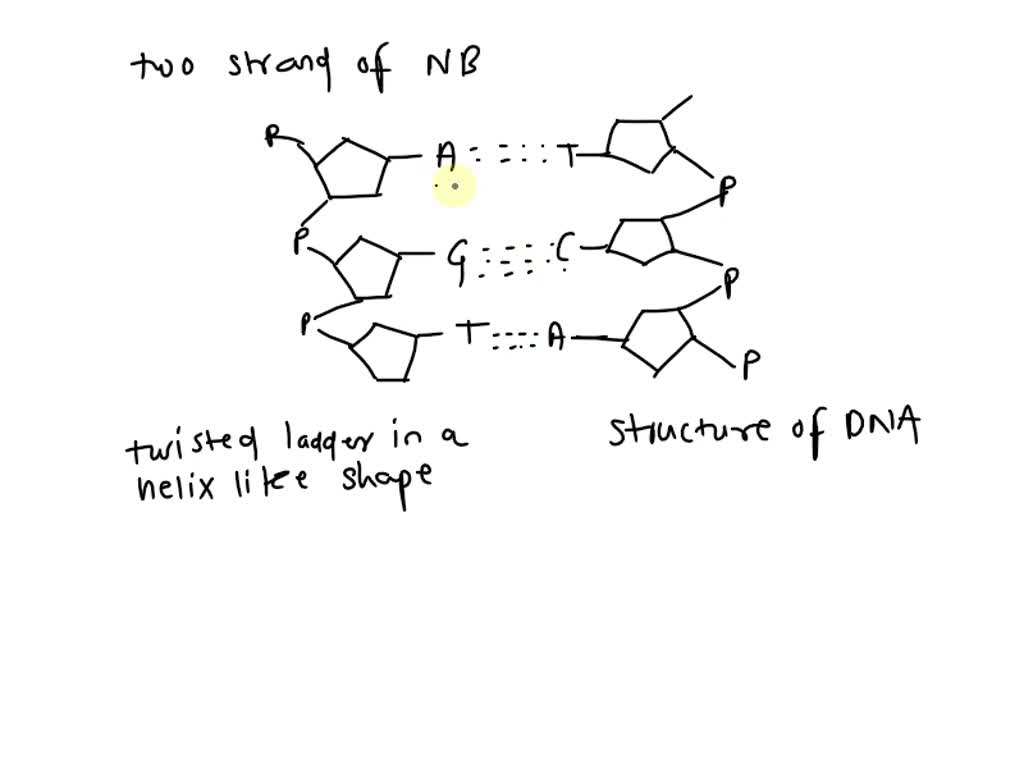 two strand of NB
P A T
P
P G C
P
P T A
P
twisted ladder in a
helix like shape
structure of DNA